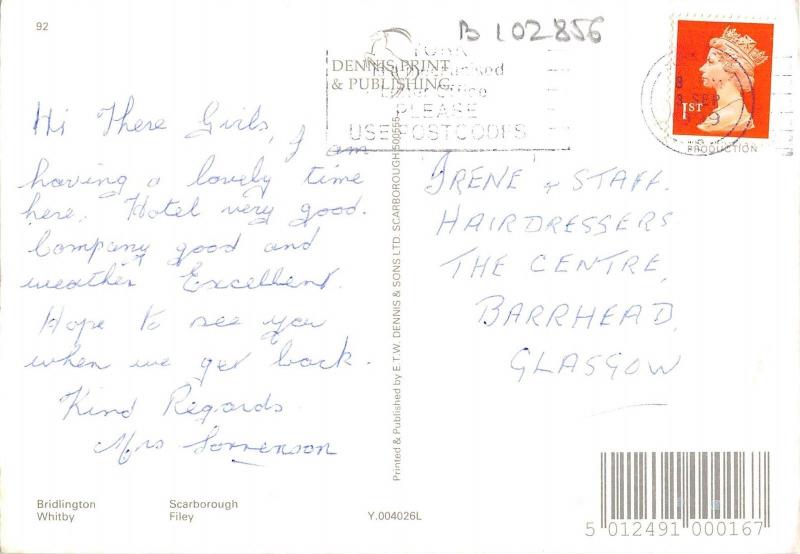 92
B 102856
YORK
DENNIS PRINT
& PUBLISHING
Office
PLEASE
USE POSTCODES
1ST
SEP
PRODUCTION
Hi There Girls, I am
having a lovely time
here. Hotel very good.
Company good and
weather Excellent.
Hope to see you
when we get back.
Kind Regards
Mrs Sorrenson
IRENE & STAFF.
HAIRDRESSERS
THE CENTRE,
BARRHEAD,
GLASGOW
Printed & Published by E.T.W. DENNIS & SONS LTD. SCARBOROUGH 500555
Bridlington Scarborough
Whitby Filey
Y.004026L
5 012491 000167